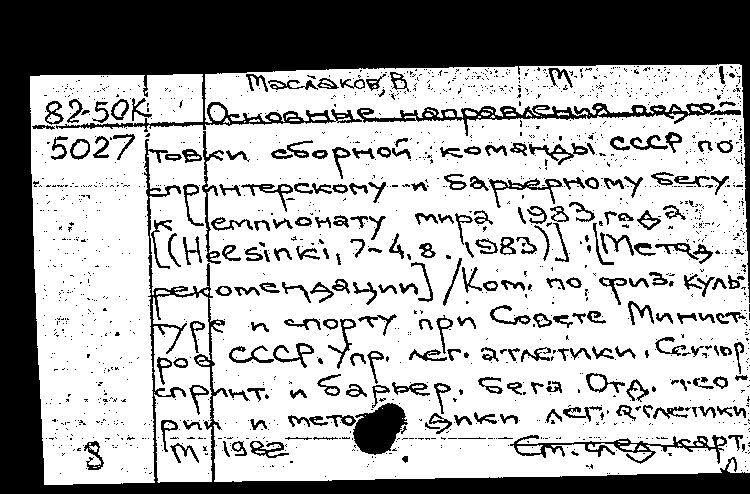 Маслаков, В М 1.
82-50К Основные направления подго-
5027 товки сборной команды СССР по
спринтерскому и барьерному бегу
к чемпионату мира 1983 года
[(Helsinki, 7-4, 8. 1983)] : [Метод.
рекомендации] / Ком. по физ. куль-
туре и спорту при Совете Минист-
ров СССР. Упр. лег. атлетики. Сектор
спринт. и барьер. бега. Отд. тео-
рии и методики лег. атлетики
8 М 1982 См. след. карт.